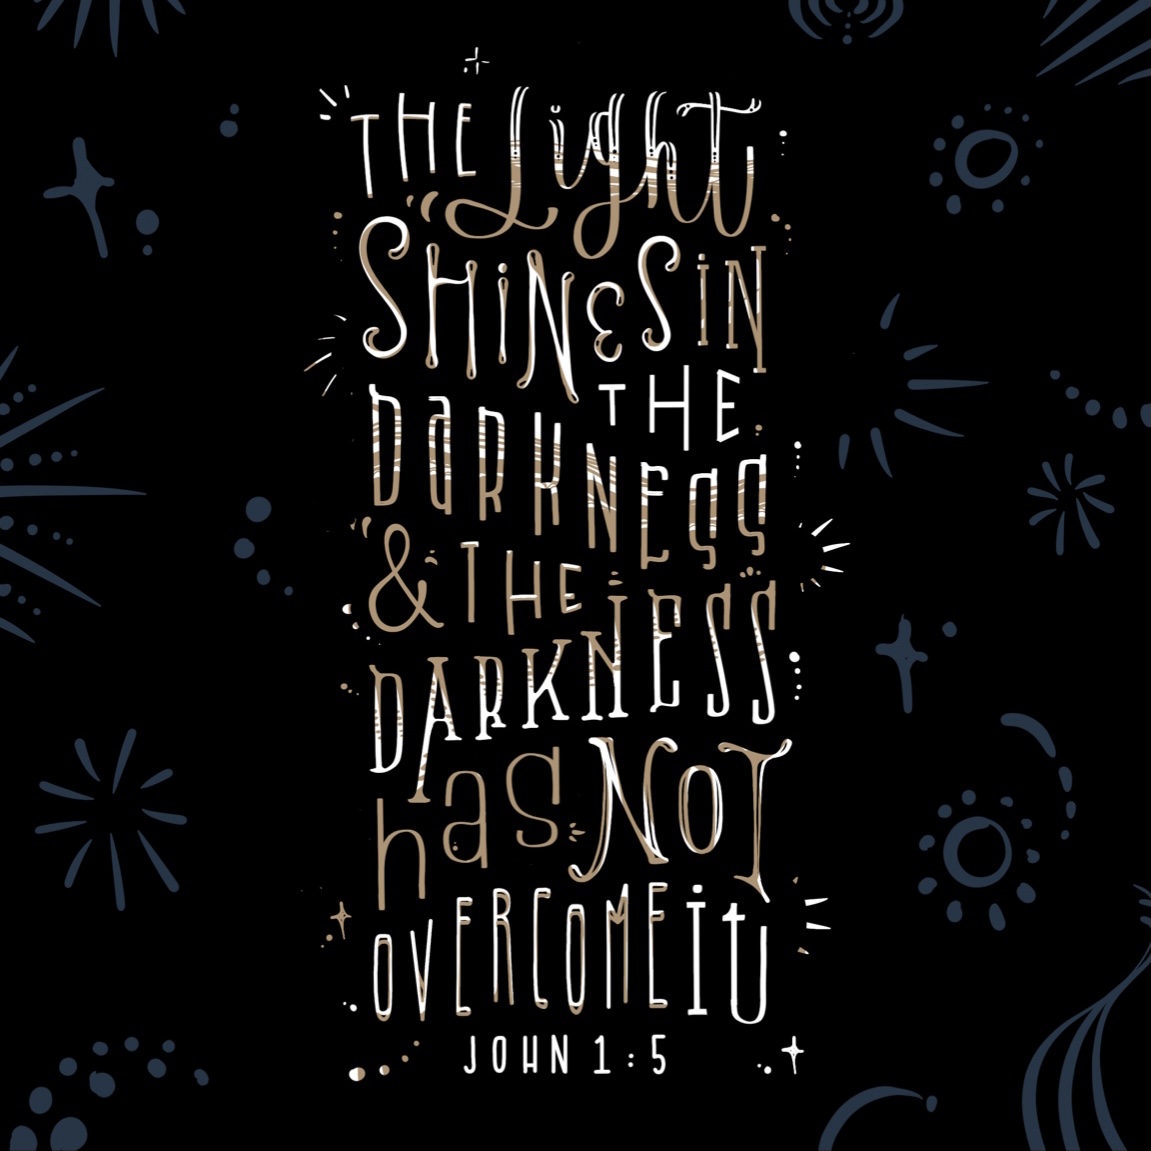 THE Light
SHiNES iN
THE
DaRKNESS
& THE
DARKNESS
has NOT
OVERCOME it
JOHN 1:5